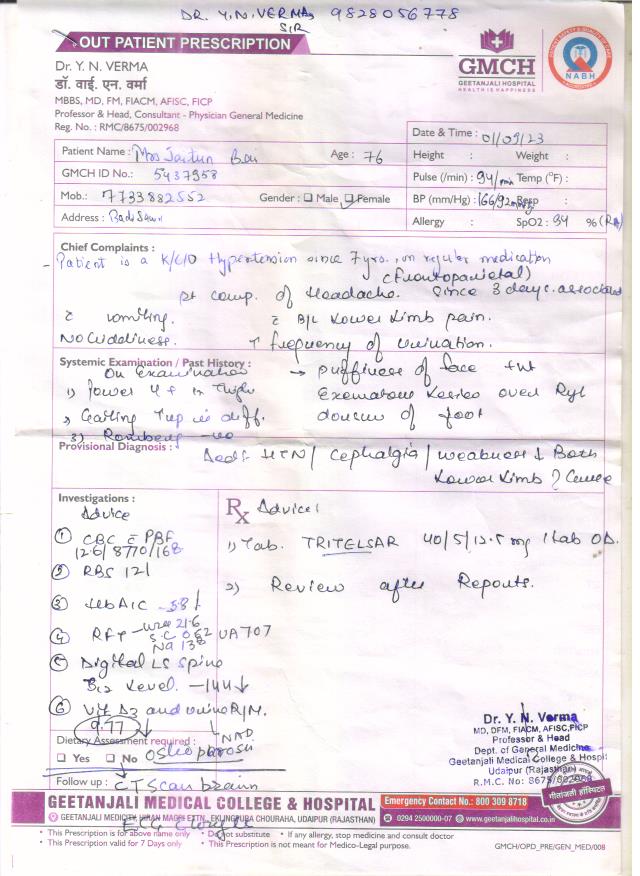 DR. Y.N. VERMA, 9828056778
SIR
OUT PATIENT PRESCRIPTION
Dr. Y. N. VERMA
डॉ. वाई. एन. वर्मा
MBBS, MD, FM, FIACM, AFISC, FICP
Professor & Head, Consultant - Physician General Medicine
Reg. No. : RMC/8675/002968
GMCH
GEETANJALI HOSPITAL
HEALTH IS HAPPINESS
NABH
Date & Time : 01/09/23
Patient Name : Mrs Jaitun Bai Age : 76
Height : Weight :
GMCH ID No.: 5437958
Pulse (/min) : 94/min Temp (°F) :
Mob.: 7733882552 Gender : Male Female
BP (mm/Hg) : 166/92mmHg Resp :
Address : Badi
Allergy : SpO2 : 94 % (RA)
Chief Complaints :
Patient is a K/C/O Hypertension since 7yrs., on regular medication
(Frontoparietal)
pt comp. of Headache. since 3 days. associated
c vomiting. c B/L Lower Limb pain.
No Giddiness. ↑ frequency of urination.
Systemic Examination / Past History :
On examination → puffiness of face +nt
1) Power 4+ in thigh
over Rt
2) Getting up is diff. dorsum of foot
3) Romberg -ve
Provisional Diagnosis :
HTN / Cephalgia / weakness Both
Lower Limb ? Cause
Investigations :
Advice
Rx Advice:
① CBC c PBF
12.6/8770/168
1) Tab. TRITELSAR 40/5/12.5 mg 1 tab OD.
② RBS 121
2) Review after Reports.
③ HbA1C - 5.8
④ RFT - urea 21.6
S.C 0.62 UA 7.07
Na 138
⑤ Digital LS Spine
B12 Level. - 144 ↓
⑥ Vit D3 and urine R/M.
9.77 ↓ NAD
Dietary Assessment required :
Yes No Osteoporosis
Follow up : CT Scan brain
Dr. Y. N. Verma
MD, DFM, FIACM, AFISC, FICP
Professor & Head
Dept. of General Medicine
Geetanjali Medical College & Hospi
Udaipur (Rajasthan)
R.M.C. No: 8675/002968
गीतांजली हॉस्पिटल
GEETANJALI MEDICAL COLLEGE & HOSPITAL
Emergency Contact No.: 800 309 8718
GEETANJALI MEDICITY, HIRAN MAGRI EXTN., EKLINGPURA CHOURAHA, UDAIPUR (RAJASTHAN)
0294 2500000-07 www.geetanjalihospital.co.in
ECG
• This Prescription is for above name only • Do not substitute • If any allergy, stop medicine and consult doctor
• This Prescription valid for 7 Days only • This Prescription is not meant for Medico-Legal purpose.
GMCH/OPD_PRE/GEN_MED/008